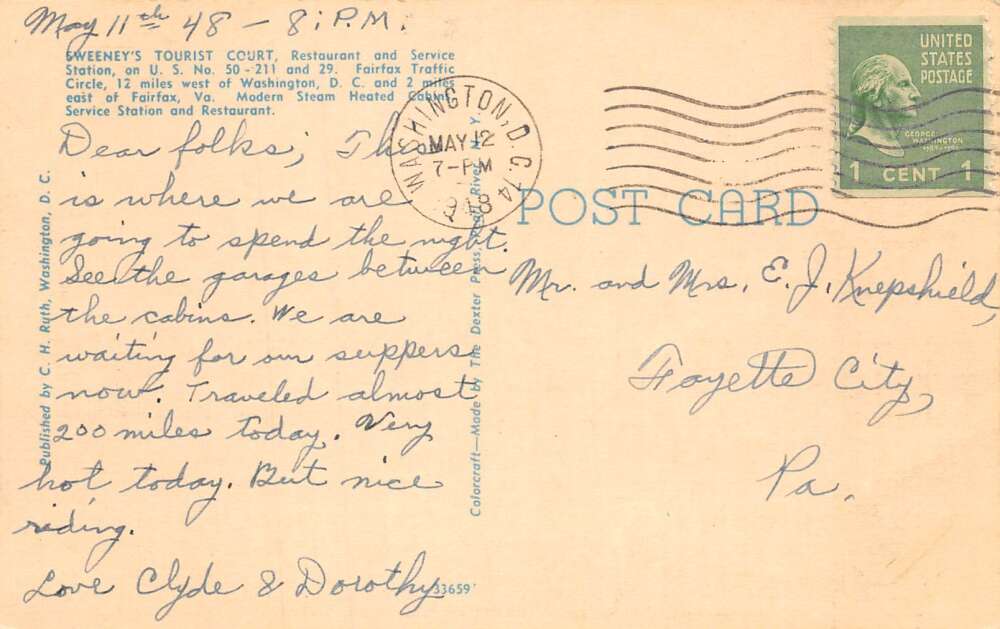 May 11th 48 - 8: P.M.
SWEENEY'S TOURIST COURT, Restaurant and Service
Station, on U. S. No. 50-211 and 29. Fairfax Traffic
Circle, 12 miles west of Washington, D. C. and 2 miles
east of Fairfax, Va. Modern Steam Heated Cabins
Service Station and Restaurant.
Dear folks; This
is where we are
going to spend the night.
See the garages between
the cabins. We are
waiting for our suppers
now. Traveled almost
200 miles today. Very
hot today. But nice
riding.
Love Clyde & Dorothy
Published by C. H. Ruth, Washington, D. C.
Colorcraft—Made by The Dexter Press, Pearl River, N. Y.
33659
WASHINGTON, D.C. 14
MAY 12
7-PM
1948
POST CARD
UNITED
STATES
POSTAGE
GEORGE
WASHINGTON
1 CENT 1
Mr. and Mrs. E. J. Knepshield,
Fayette City,
Pa.